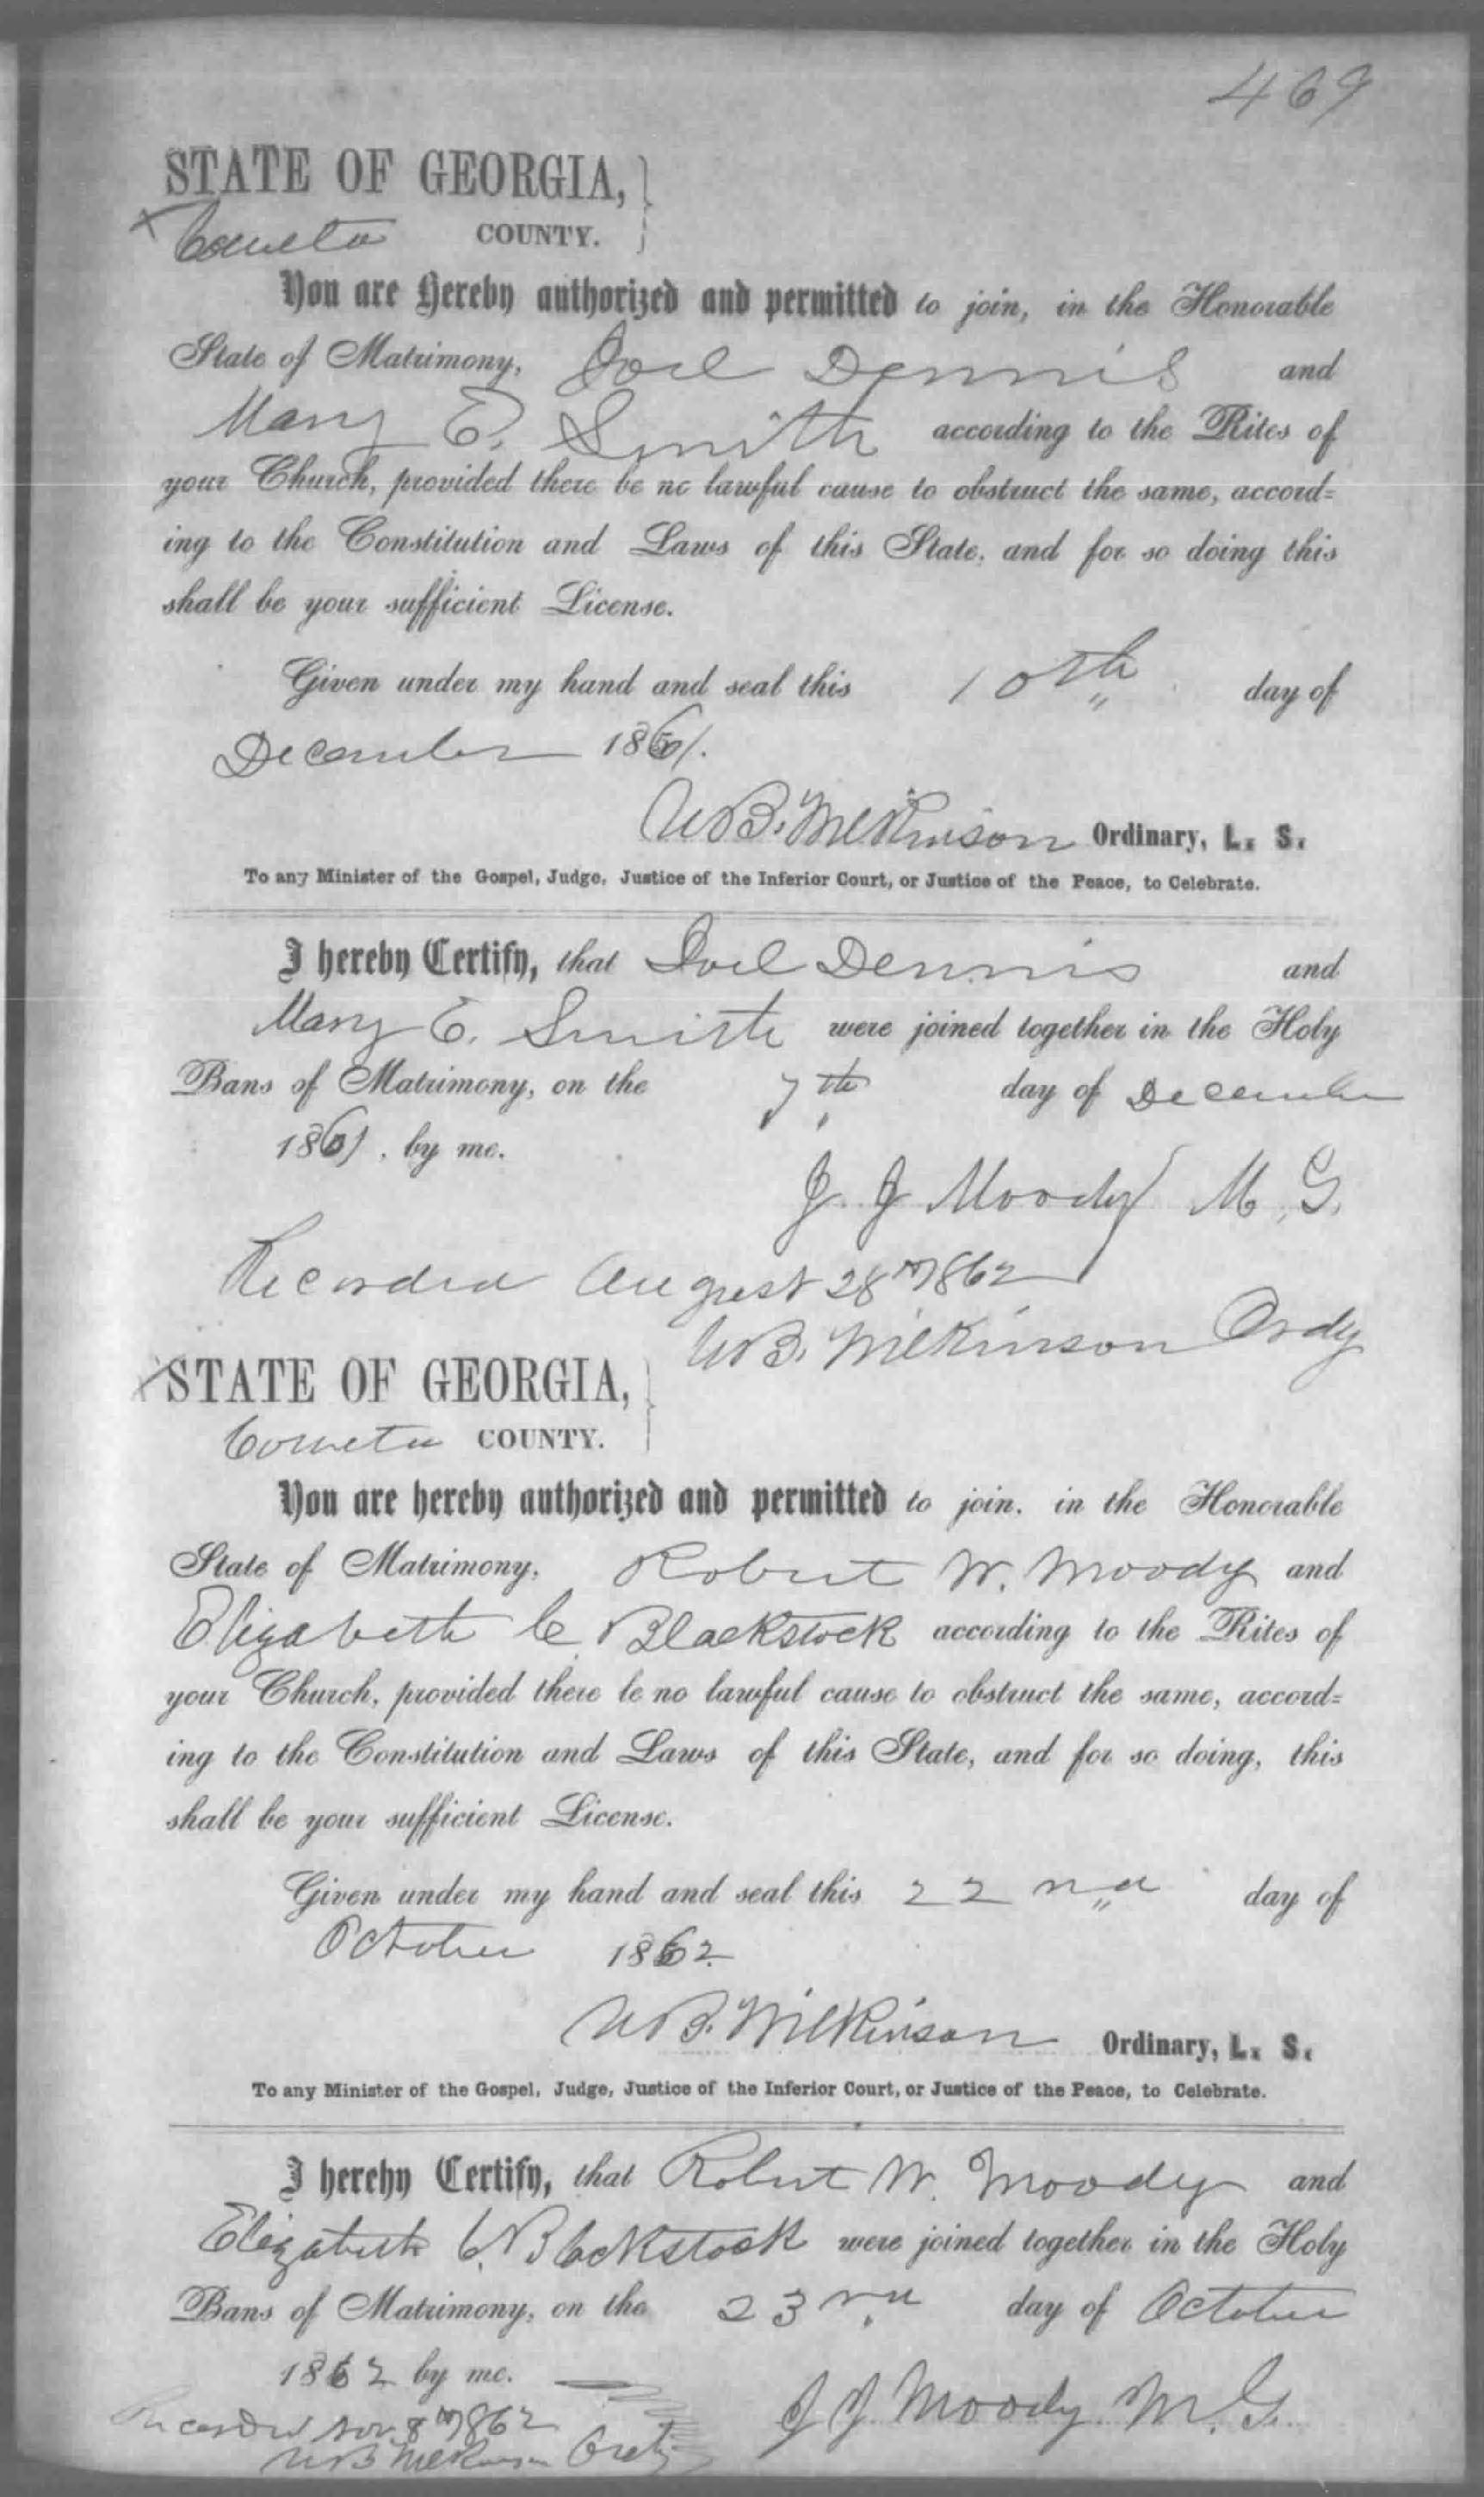 469
STATE OF GEORGIA,
Coweta COUNTY.
You are Hereby authorized and permitted to join, in the Honorable
State of Matrimony, Joel Dennis and
Mary E. Smith according to the Rites of
your Church, provided there be no lawful cause to obstruct the same, accord=
ing to the Constitution and Laws of this State, and for so doing this
shall be your sufficient License.
Given under my hand and seal this 10th day of
December 1861.
U B. Wilkinson Ordinary, L. S.
To any Minister of the Gospel, Judge, Justice of the Inferior Court, or Justice of the Peace, to Celebrate.
I hereby Certify, that Joel Dennis and
Mary E. Smith were joined together in the Holy
Bans of Matrimony, on the 7th day of December
1861, by me.
J. J Moody M. G.
Recorded August 28th 1862
U B. Wilkinson Ordy
STATE OF GEORGIA,
Coweta COUNTY.
You are hereby authorized and permitted to join, in the Honorable
State of Matrimony, Robert W. Moody and
Elizabeth C Blackstock according to the Rites of
your Church, provided there be no lawful cause to obstruct the same, accord=
ing to the Constitution and Laws of this State, and for so doing, this
shall be your sufficient License.
Given under my hand and seal this 22nd day of
October 1862
U B. Wilkinson Ordinary, L. S.
To any Minister of the Gospel, Judge, Justice of the Inferior Court, or Justice of the Peace, to Celebrate.
I hereby Certify, that Robert W. Moody and
Elizabeth C. Blckstock were joined together in the Holy
Bans of Matrimony, on the 23rd day of October
1862 by me.
J J Moody M. G.
Recorded Nov 8th 1862
U B Wilkinson Ordy